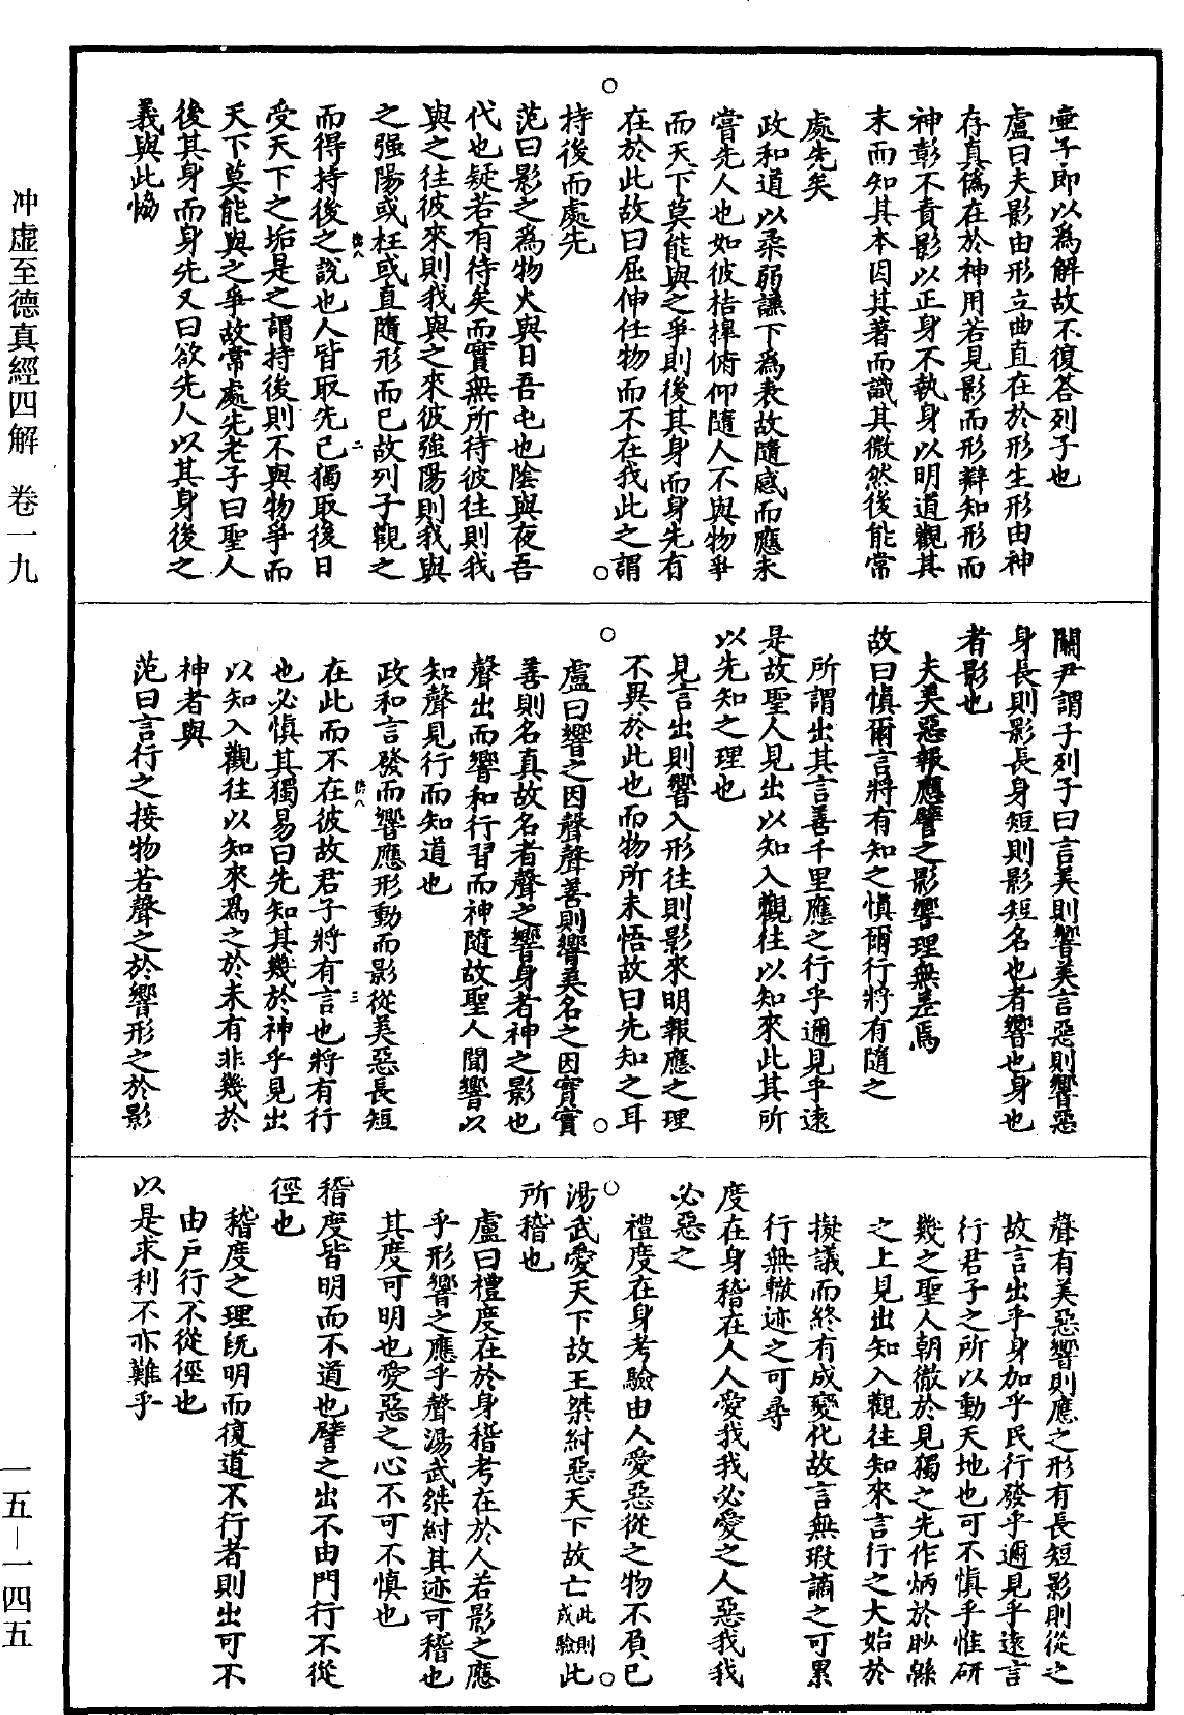 壷子即以爲解故不復荅列子也
盧曰夫影由形立曲直在於形生形由神
存真僞在於神用若見影而形辯知形而
神彰不責影以正身不執身以明道觀其
末而知其本因其著而識其微然後能常
處先矣
政和道以柔弱謙下爲表故隨感而應未
嘗先人也如彼桔槹俯仰隨人不與物爭
而天下莫能與之爭則後其身而身先有
在於此故曰屈伸任物而不在我此之謂
持後而處先
范曰影之爲物火與日吾屯也陰與夜吾
代也疑若有待矣而實無所待彼往則我
與之往彼來則我與之來彼強陽則我與
之强陽或枉或直隨形而已故列子觀之
而得持後之說也人皆取先己獨取後曰
受天下之垢是之謂持後則不與物爭而
天下莫能與之爭故常處先老子曰聖人
後其身而身先又曰欲先人以其身後之
義與此恊
關尹謂子列子曰言美則響美言惡則響惡
身長則影長身短則影短名也者響也身也
者影也
夫美惡報應譬之影響理無差焉
故曰愼爾言將有知之愼爾行將有隨之
所謂出其言善千里應之行乎邇見乎遠
是故聖人見出以知入觀往以知來此其所
以先知之理也
見言出則響入形往則影來明報應之理
不異於此也而物所未悟故曰先知之耳
盧曰響之因聲聲善則響美名之因實實
善則名真故名者聲之響身者神之影也
聲出而響和行習而神隨故聖人聞響以
知聲見行而知道也
政和言發而響應形動而影從美惡長短
在此而不在彼故君子將有言也將有行
也必愼其獨易曰先知其幾於神乎見出
以知入觀往以知來爲之於未有非幾於
神者與
范曰言行之接物若聲之於響形之於影
聲有美惡響則應之形有長短影則從之
故言出乎身加乎民行發乎邇見乎遠言
行君子之所以動天地也可不愼乎惟研
幾之聖人朝徹於見獨之先作炳於眇緜
之上見出知入觀往知來言行之大始於
擬議而終有成變化故言無瑕讁之可累
行無轍迹之可尋
度在身稽在人人愛我我必愛之人惡我我
必惡之
禮度在身考驗由人愛惡從之物不負已
湯武愛天下故王桀紂惡天下故亡此則成驗此
所稽也
盧曰禮度在於身稽考在於人若影之應
乎形響之應乎聲湯武桀紂其迹可稽也
其度可明也愛惡之心不可不愼也
稽度皆明而不道也譬之出不由門行不從
徑也
稽度之理旣明而復道不行者則出可不
由戸行不從徑也
以是求利不亦難乎
冲虛至德真經四解　卷一九
一五－一四五